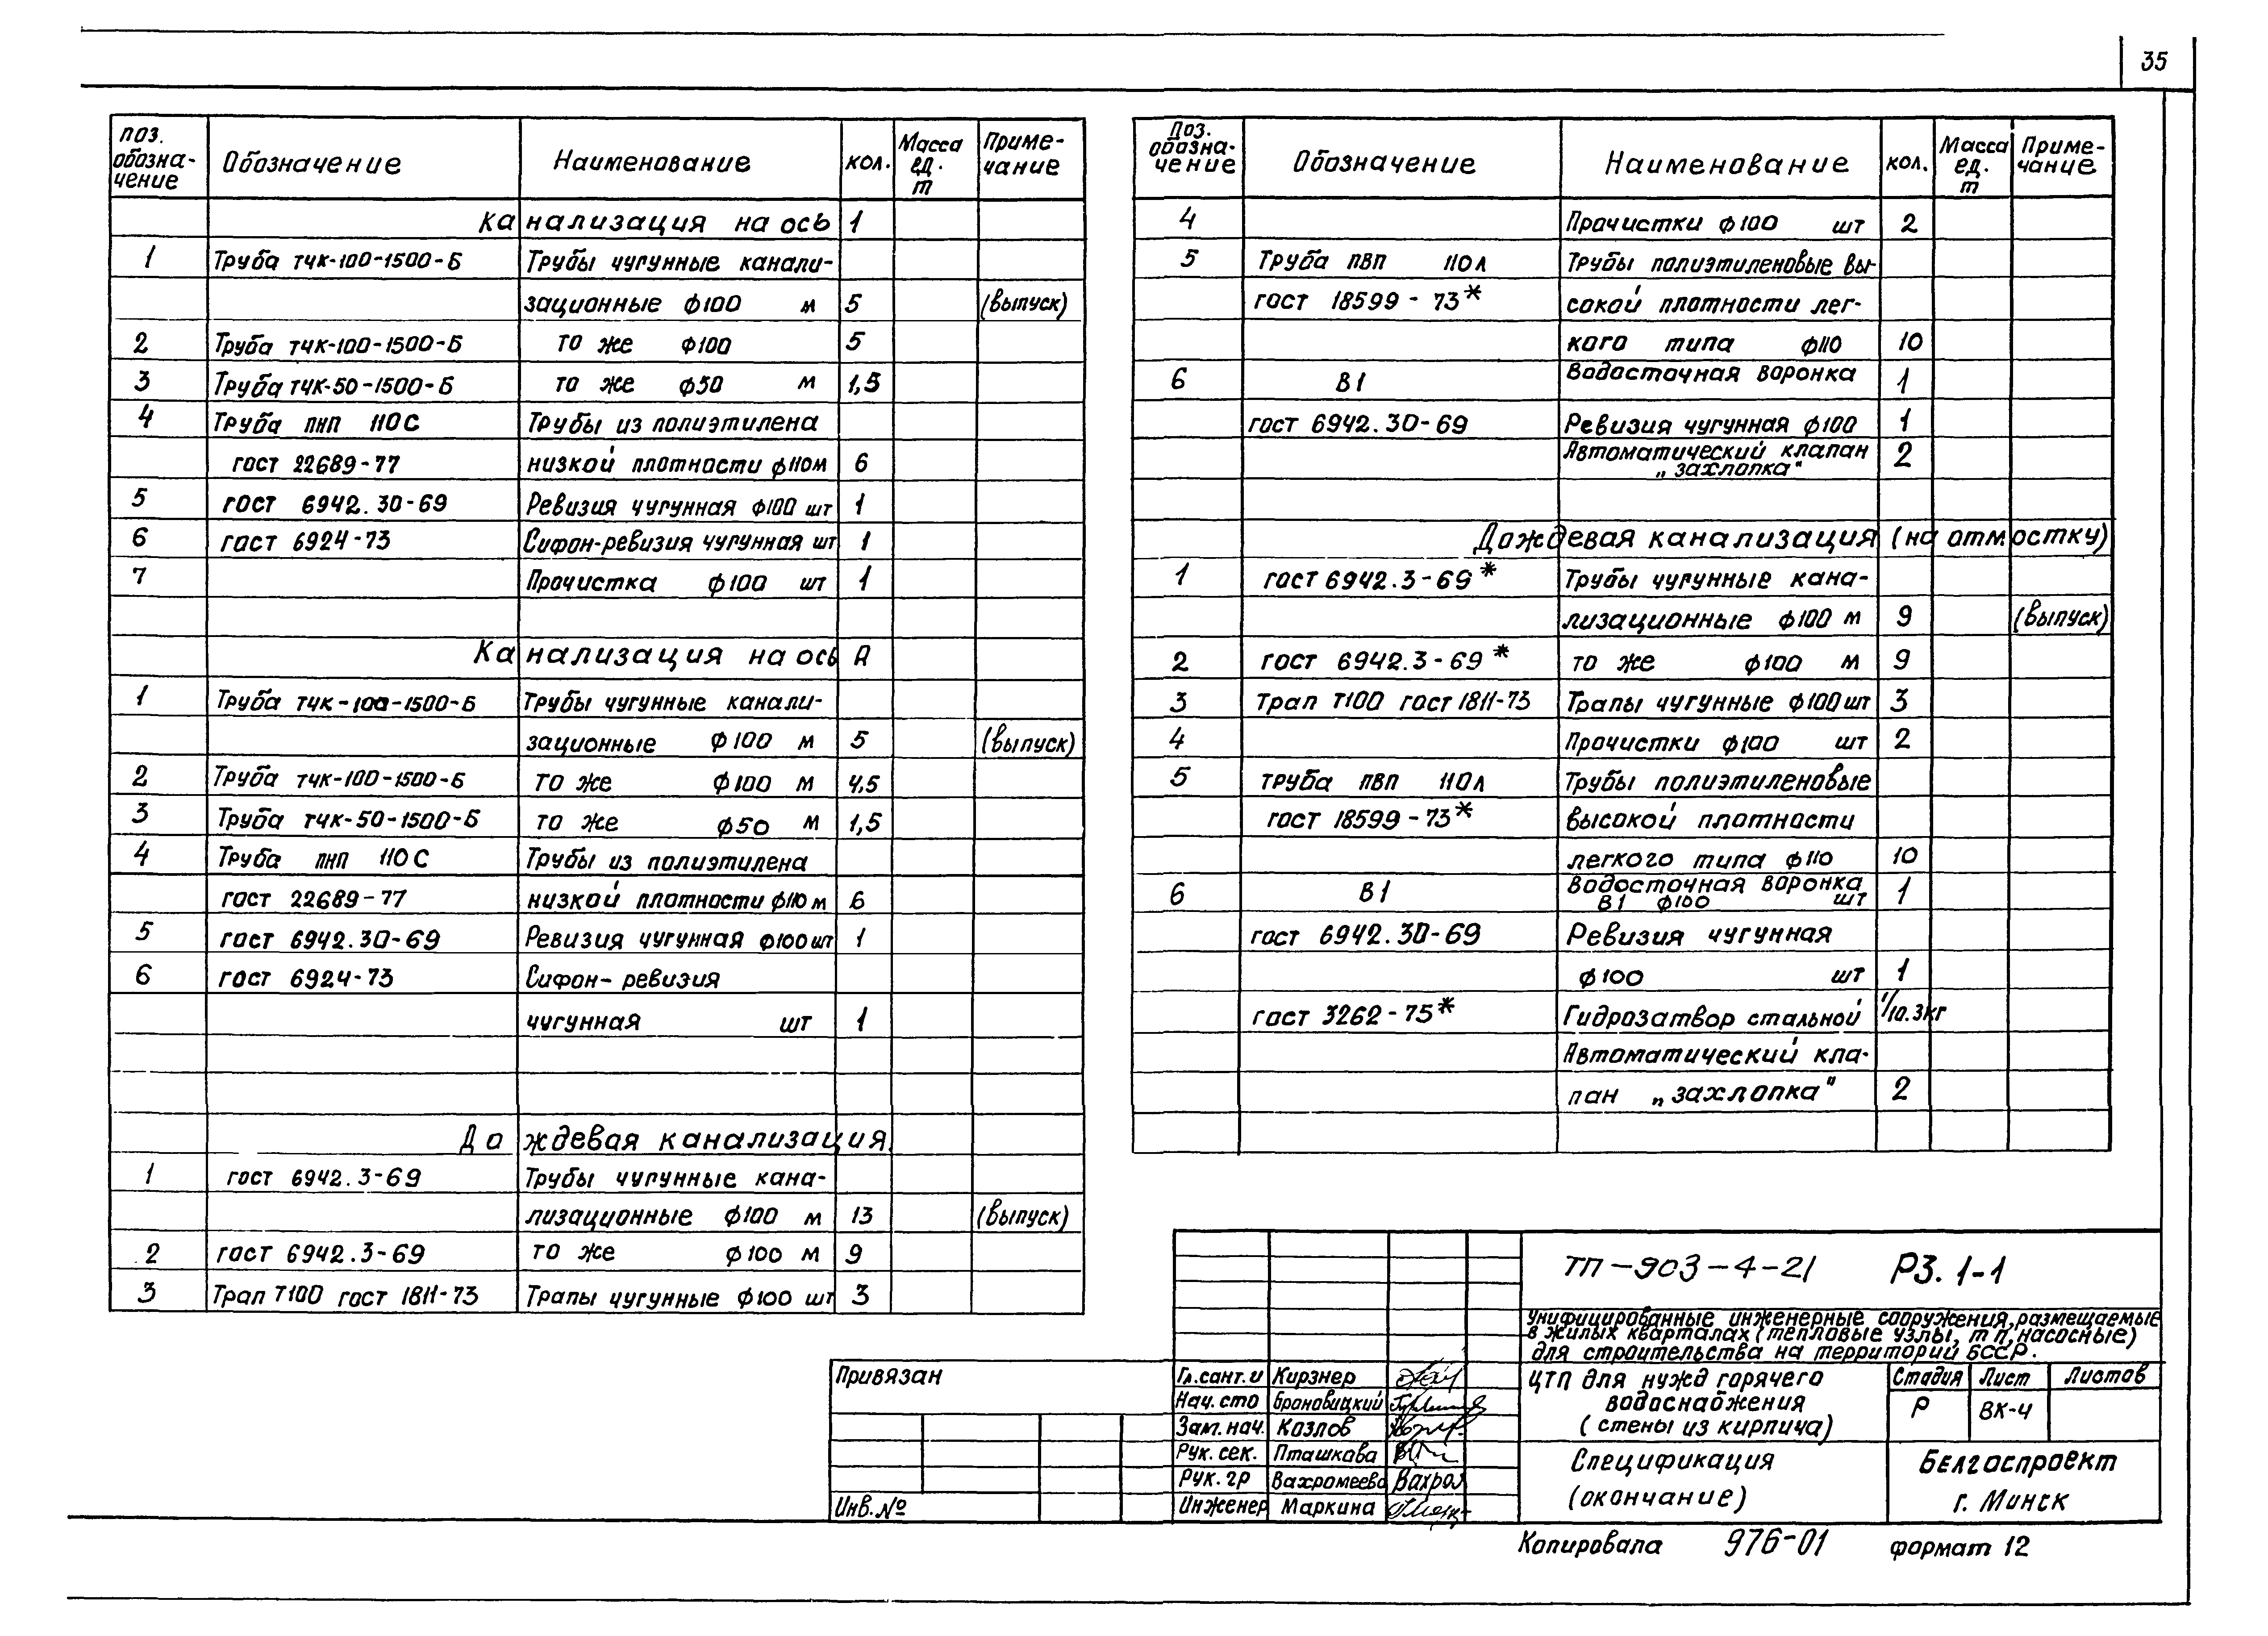 35
поз. обозна-чение Обозначение Наименование кол. Масса ед. т Приме-чание
Канализация на ось 1
1 Труба ТЧК-100-1500-Б Трубы чугунные канали-
зационные ф100 м 5 (выпуск)
2 Труба ТЧК-100-1500-Б то же ф100 5
3 Труба ТЧК-50-1500-Б то же ф50 м 1,5
4 Труба ПНП 110 С Трубы из полиэтилена
гост 22689-77 низкой плотности ф110м 6
5 гост 6942.30-69 Ревизия чугунная ф100 шт 1
6 гост 6924-73 Сифон-ревизия чугунная шт 1
7 Прочистка ф100 шт 1
Канализация на ось А
1 Труба ТЧК-100-1500-Б Трубы чугунные канали-
зационные ф100 м 5 (выпуск)
2 Труба ТЧК-100-1500-Б то же ф100 м 4,5
3 Труба ТЧК-50-1500-Б то же ф50 м 1,5
4 Труба ПНП 110 С Трубы из полиэтилена
гост 22689-77 низкой плотности ф110 м 6
5 гост 6942.30-69 Ревизия чугунная ф100 шт 1
6 гост 6924-73 Сифон-ревизия
чугунная шт 1
Дождевая канализация
1 гост 6942.3-69 Трубы чугунные кана-
лизационные ф100 м 13 (выпуск)
2 гост 6942.3-69 то же ф100 м 9
3 Трап Т100 гост 1811-73 Трапы чугунные ф100 шт 3
Поз. обозна-чение Обозначение Наименование кол. Масса ед. т Приме-чание
4 Прочистки ф100 шт 2
5 Труба ПВП 110Л Трубы полиэтиленовые вы-
гост 18599-73* сокой плотности лег-
кого типа ф110 10
6 В1 Водосточная воронка 1
гост 6942.30-69 Ревизия чугунная ф100 1
Автоматический клапан 2
„захлопка"
Дождевая канализация (на отмостку)
1 гост 6942.3-69* Трубы чугунные кана-
лизационные ф100 м 9 (выпуск)
2 гост 6942.3-69* то же ф100 м 9
3 Трап Т100 гост 1811-73 Трапы чугунные ф100 шт 3
4 Прочистки ф100 шт 2
5 труба ПВП 110Л Трубы полиэтиленовые
гост 18599-73* высокой плотности
легкого типа ф110 10
6 В1 Водосточная воронка 1
В1 ф100 шт
гост 6942.30-69 Ревизия чугунная
ф100 шт 1
гост 3262-75* Гидрозатвор стальной 1/10.3кг
Автоматический кла-
пан „захлопка" 2
ТП-903-4-21 РЗ.1-1
Унифицированные инженерные сооружения, размещаемые
в жилых кварталах (тепловые узлы, ТП, насосные)
для строительства на территории БССР.
Привязан
Инв.№
Гл.сант.и Кирзнер
Нач. сто Броновицкий
Зам. нач. Козлов
Рук. сек. Пташкова
Рук. гр Вахромеева
Инженер Маркина
ЦТП для нужд горячего
водоснабжения
(стены из кирпича)
Стадия Лист Листов
Р ВК-4
Спецификация
(окончание)
Белгоспроект
г. Минск
Копировала 976-01 формат 12